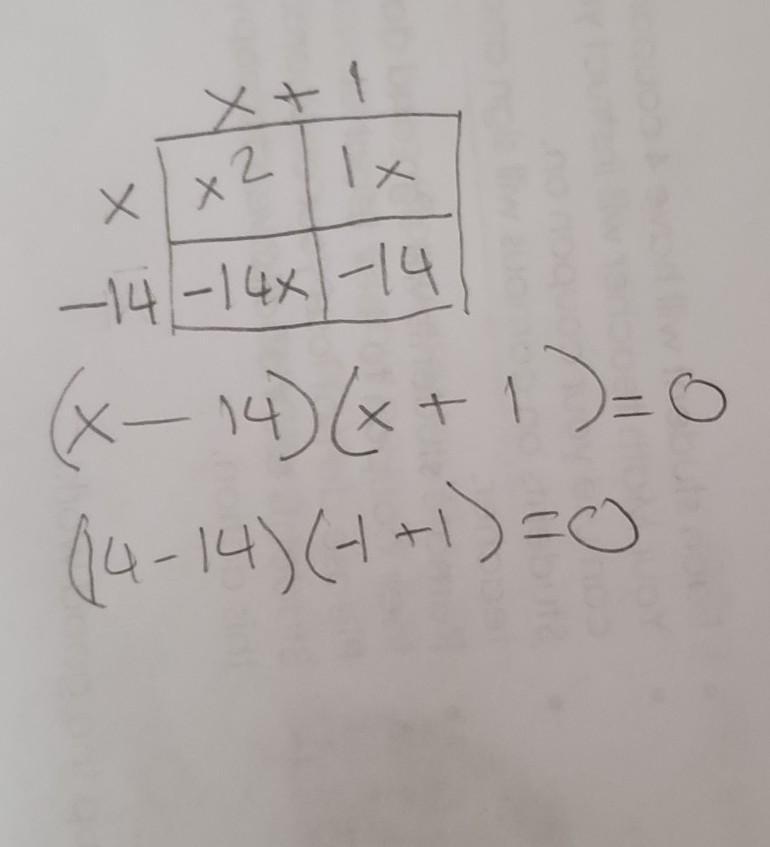 x + 1
x x² 1x
-14 -14x -14
(x - 14)(x + 1) = 0
(14 - 14)(-1 + 1) = 0